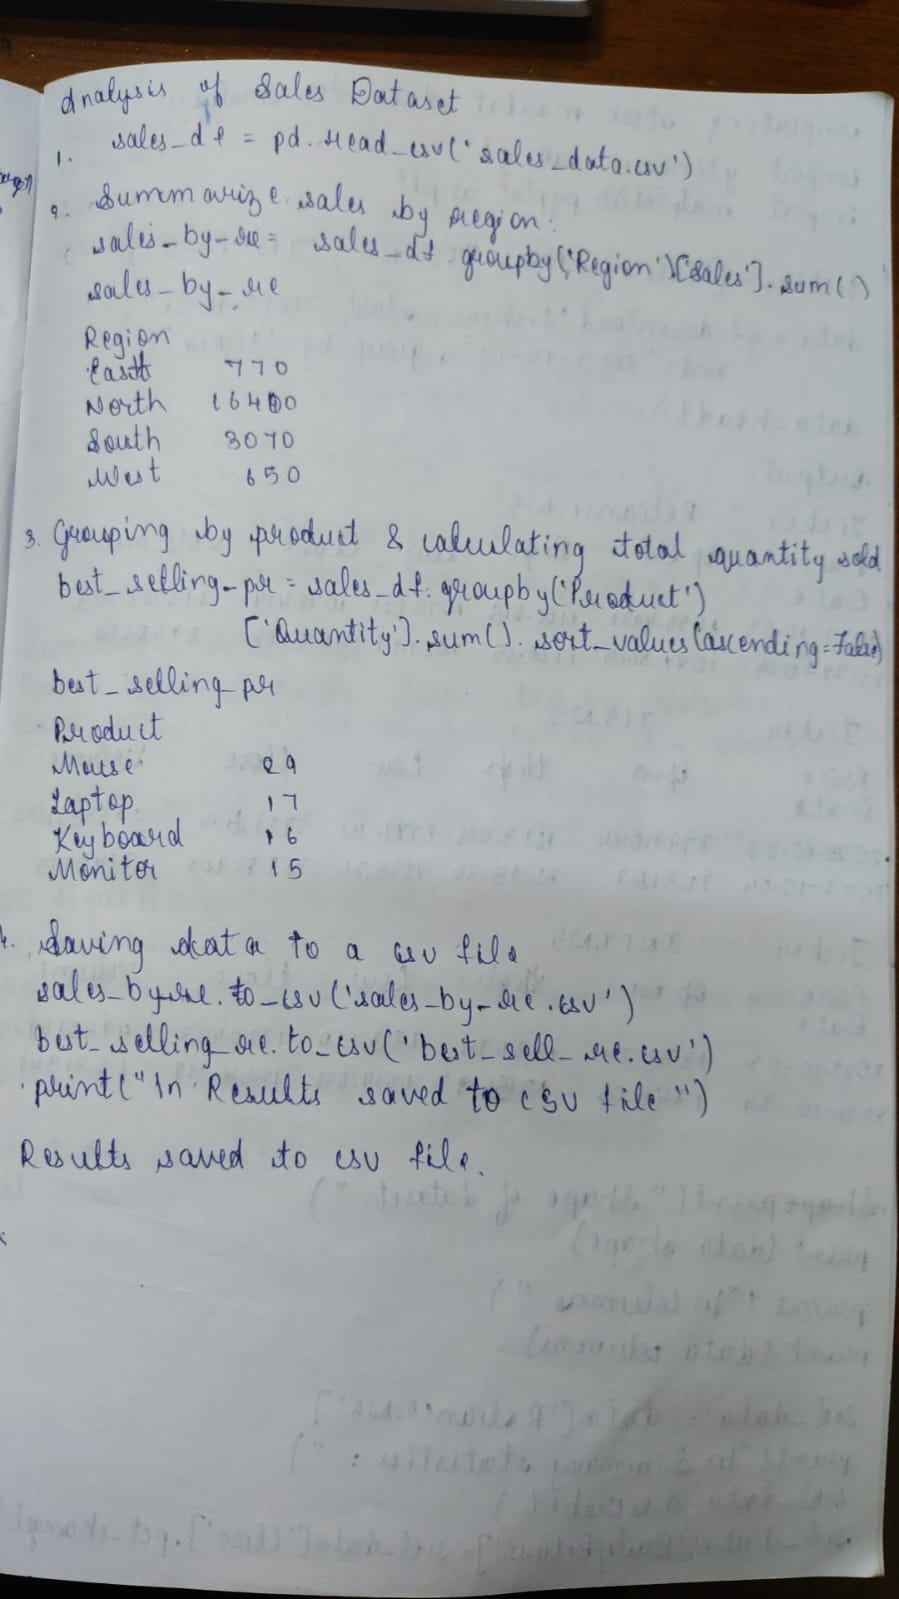 Analysis of Sales Dataset
1. sales_df = pd.read_csv('sales_data.csv')
2. Summarize sales by region:
sales_by_re = sales_df.groupby('Region')['Sales'].sum()
sales_by_re
Region
East 770
North 16400
South 3070
West 650
3. Grouping by product & calculating total quantity sold
best_selling_pr = sales_df.groupby('Product')
['Quantity'].sum().sort_values(ascending=False)
best_selling_pr
Product
Mouse 29
Laptop 17
Keyboard 16
Monitor 15
4. Saving data to a csv file
sales_by_re.to_csv('sales_by_re.csv')
best_selling_re.to_csv('best_sell_re.csv')
print("\n Results saved to CSV file")
Results saved to csv file.